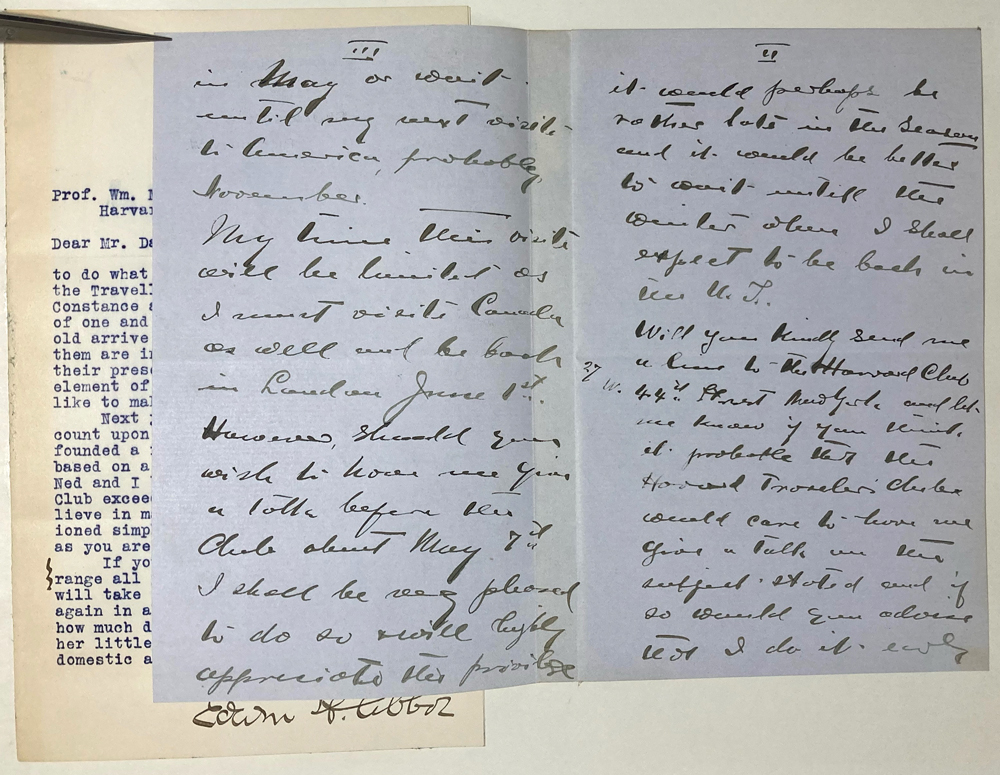 III
in May or wait
until my next visit
to America, probably
November.
My time this visit
will be limited as
I must visit Canada
as well and be back
in London June 1st.
However, should you
wish to have me give
a talk before the
Club about May 7th
I shall be very pleased
to do so & will highly
appreciate the privilege
II
it would perhaps be
rather late in the season
and it would be better
to wait until the
winter when I shall
expect to be back in
the U.S.
Will you kindly send me
a line to the Harvard Club
27 W. 44th Street New York and let
me know if you think
it probable that the
Harvard Travelers Club
would care to have me
give a talk on the
subject stated and if
so would you advise
that I do it early
Prof. Wm. M
Harvar
Dear Mr. Da
to do what
the Travell
Constance a
of one and
old arrive
them are in
their prese
element of
like to mak
Next y
count upon
founded a
based on a
Ned and I
Club exceed
lieve in m
ioned simp
as you are
If yo
range all
will take
again in a
how much d
her little
domestic a
Edwin H. Abbot